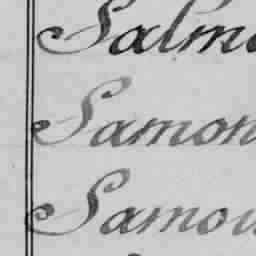 Salm
Samon
Samo